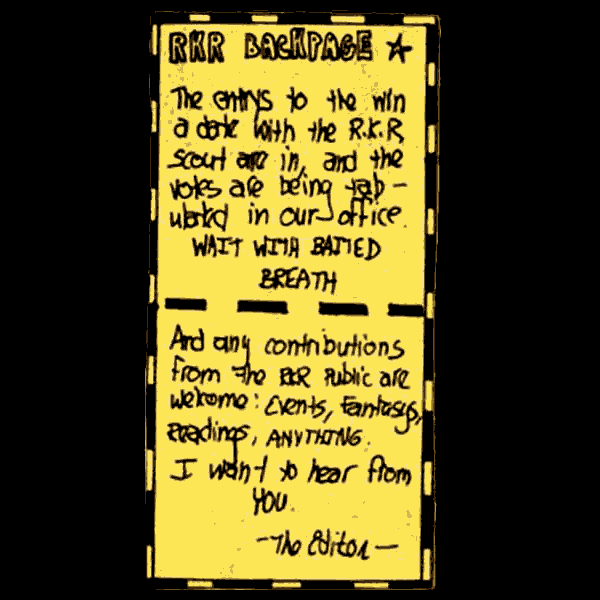 RKR BACKPAGE ☆
The entrys to the win
a date with the R.K.R
scout are in, and the
votes are being tab-
ulated in our office.
WAIT WITH BATTED
BREATH
And any contributions
from the RKR Public are
welcome: Events, Fantasys,
readings, ANYTHING.
I want to hear from
YOU.
-The Editor-